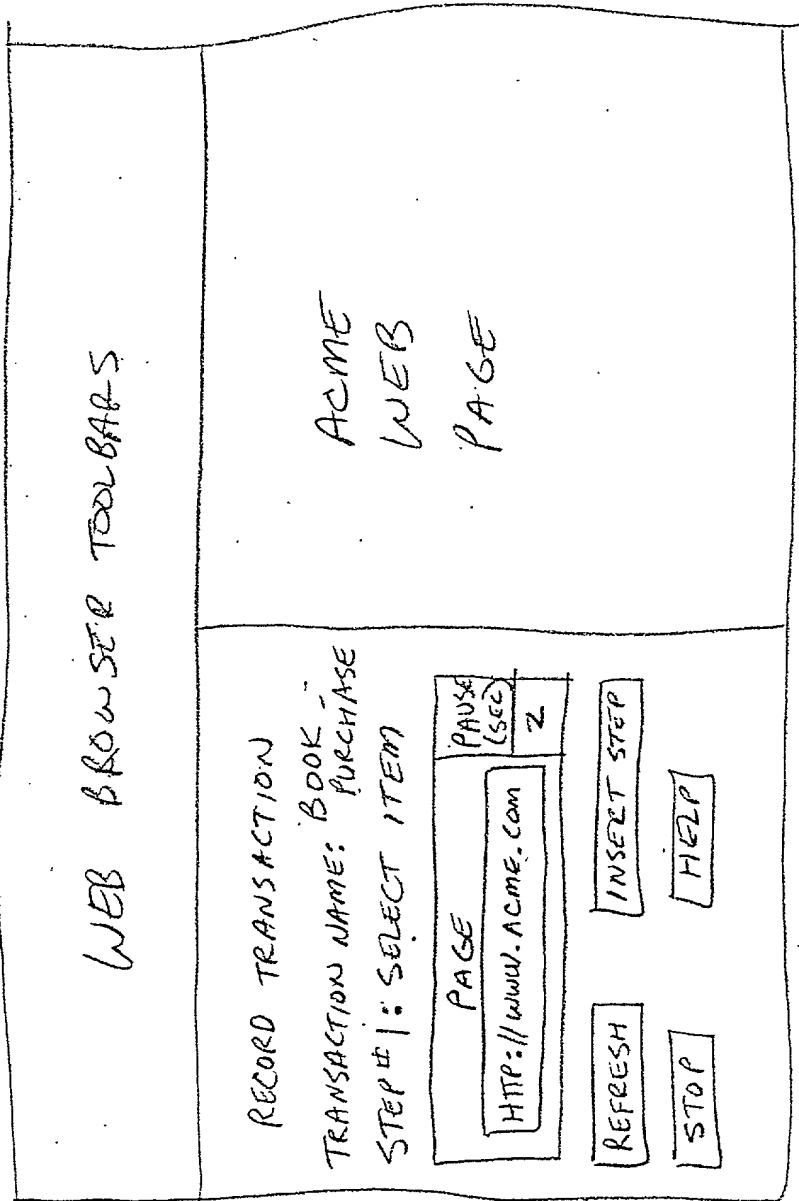 WEB BROWSER TOOLBARS
RECORD TRANSACTION
TRANSACTION NAME: BOOK-
PURCHASE
STEP #1: SELECT ITEM
PAGE
PAUSE
(SEC)
HTTP://WWW.ACME.COM
2
REFRESH
INSERT STEP
STOP
HELP
ACME
WEB
PAGE